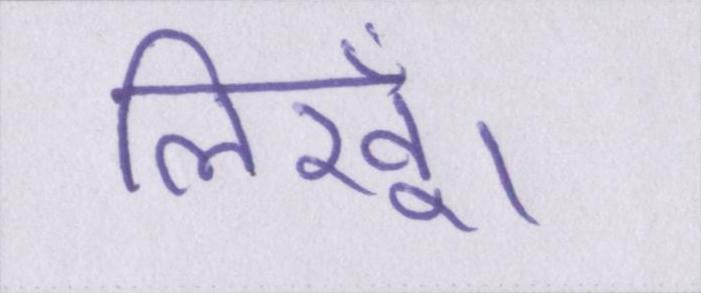 लिखूँ।